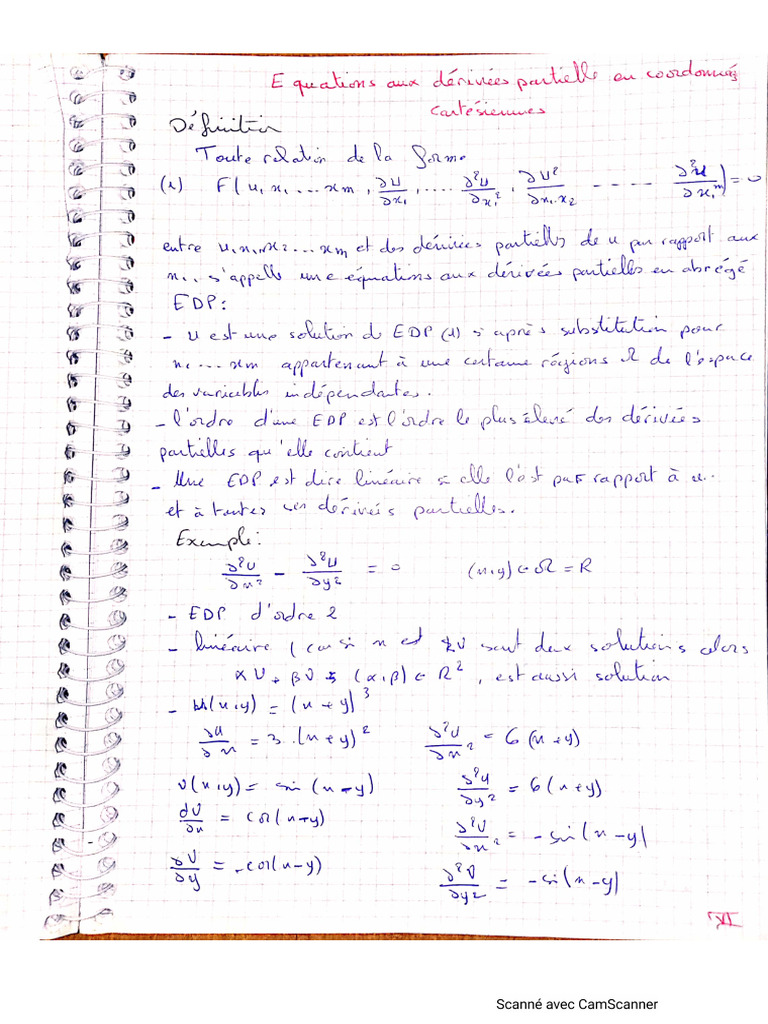 Equations aux dérivées partielle en coordonnés
cartésiennes
Définition
Toute relation de la forme
(1) F( u, x1 .... xm , ∂U/∂x1 , .... ∂²U/∂x1² , ∂U²/∂x1.x2 ---- ∂²U/∂x1^m ) = 0
entre u, x1, x2 ... xm et des dérivées partielles de u par rapport aux
x1.. s'appelle une équations aux dérivées partielles en abrégé
EDP:
- u est une solution de EDP (1) si après substitution pour
x1 ... xm appartenant à une certaine régions Ω de l'espace
des variables indépendantes.
- l'ordre d'une EDP est l'ordre le plus élevé des dérivées
partielles qu'elle contient
- Une EDP est dire linéaire si elle l'est par rapport à u..
et à toutes ses dérivés partielles.
Exemple:
∂²U/∂x² - ∂²U/∂y² = 0 (x,y) ∈ Ω = R
- EDP d'ordre 2
- linéaire ( car si u et V sont deux solutions alors
αU + βV (α,β) ∈ R², est aussi solution
- u(x,y) = (x+y)³
∂u/∂x = 3.(x+y)² ∂²U/∂x² = 6(x+y)
v(x,y) = sin(x-y) ∂²U/∂y² = 6(x+y)
dV/∂x = cos(x-y) ∂²V/∂x² = -sin(x-y)
∂V/∂y = -cos(x-y) ∂²V/∂y² = -sin(x-y)
Scanné avec CamScanner